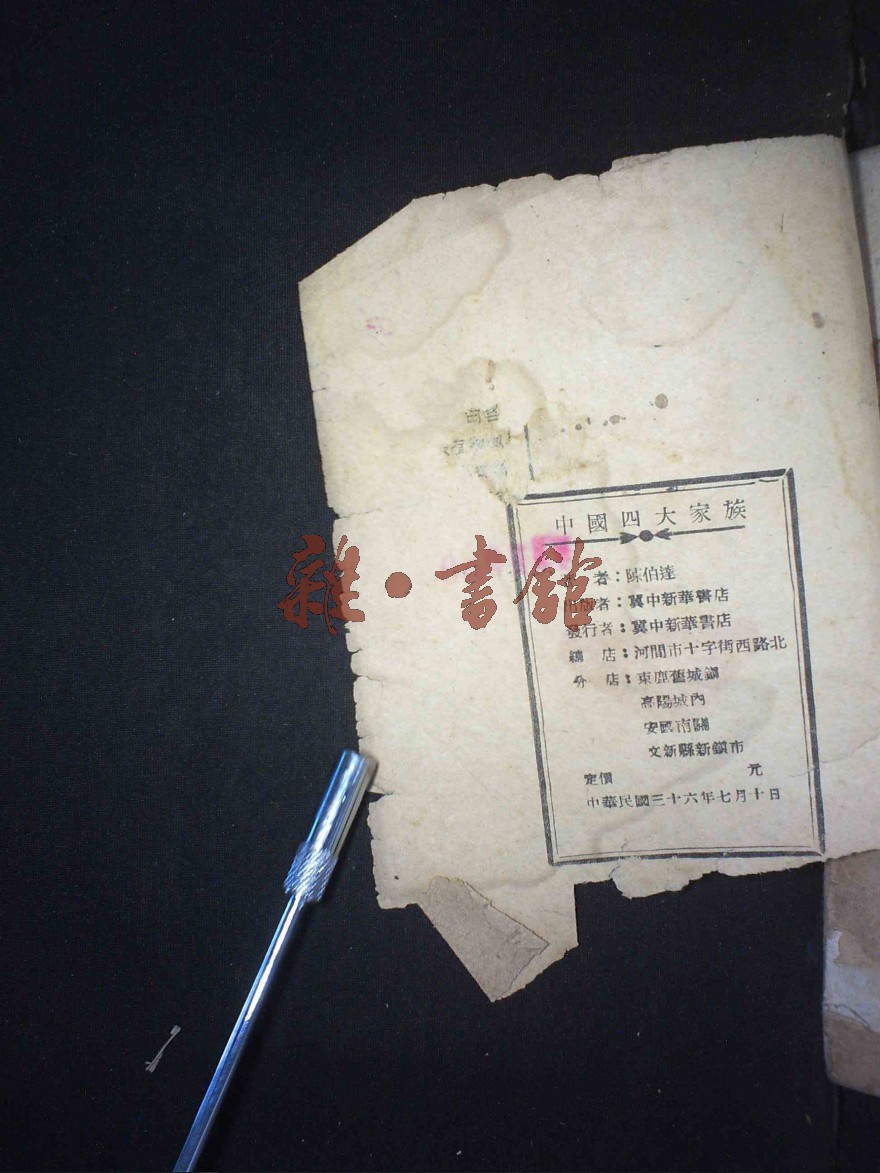 中國四大家族
著 者：陳伯達
出版者：冀中新華書店
發行者：冀中新華書店
總 店：河間市十字街西路北
分 店：束鹿舊城鎮
高陽城內
安國南關
文新縣新鎮市
定價 元
中華民國三十六年七月十日
雜·書館